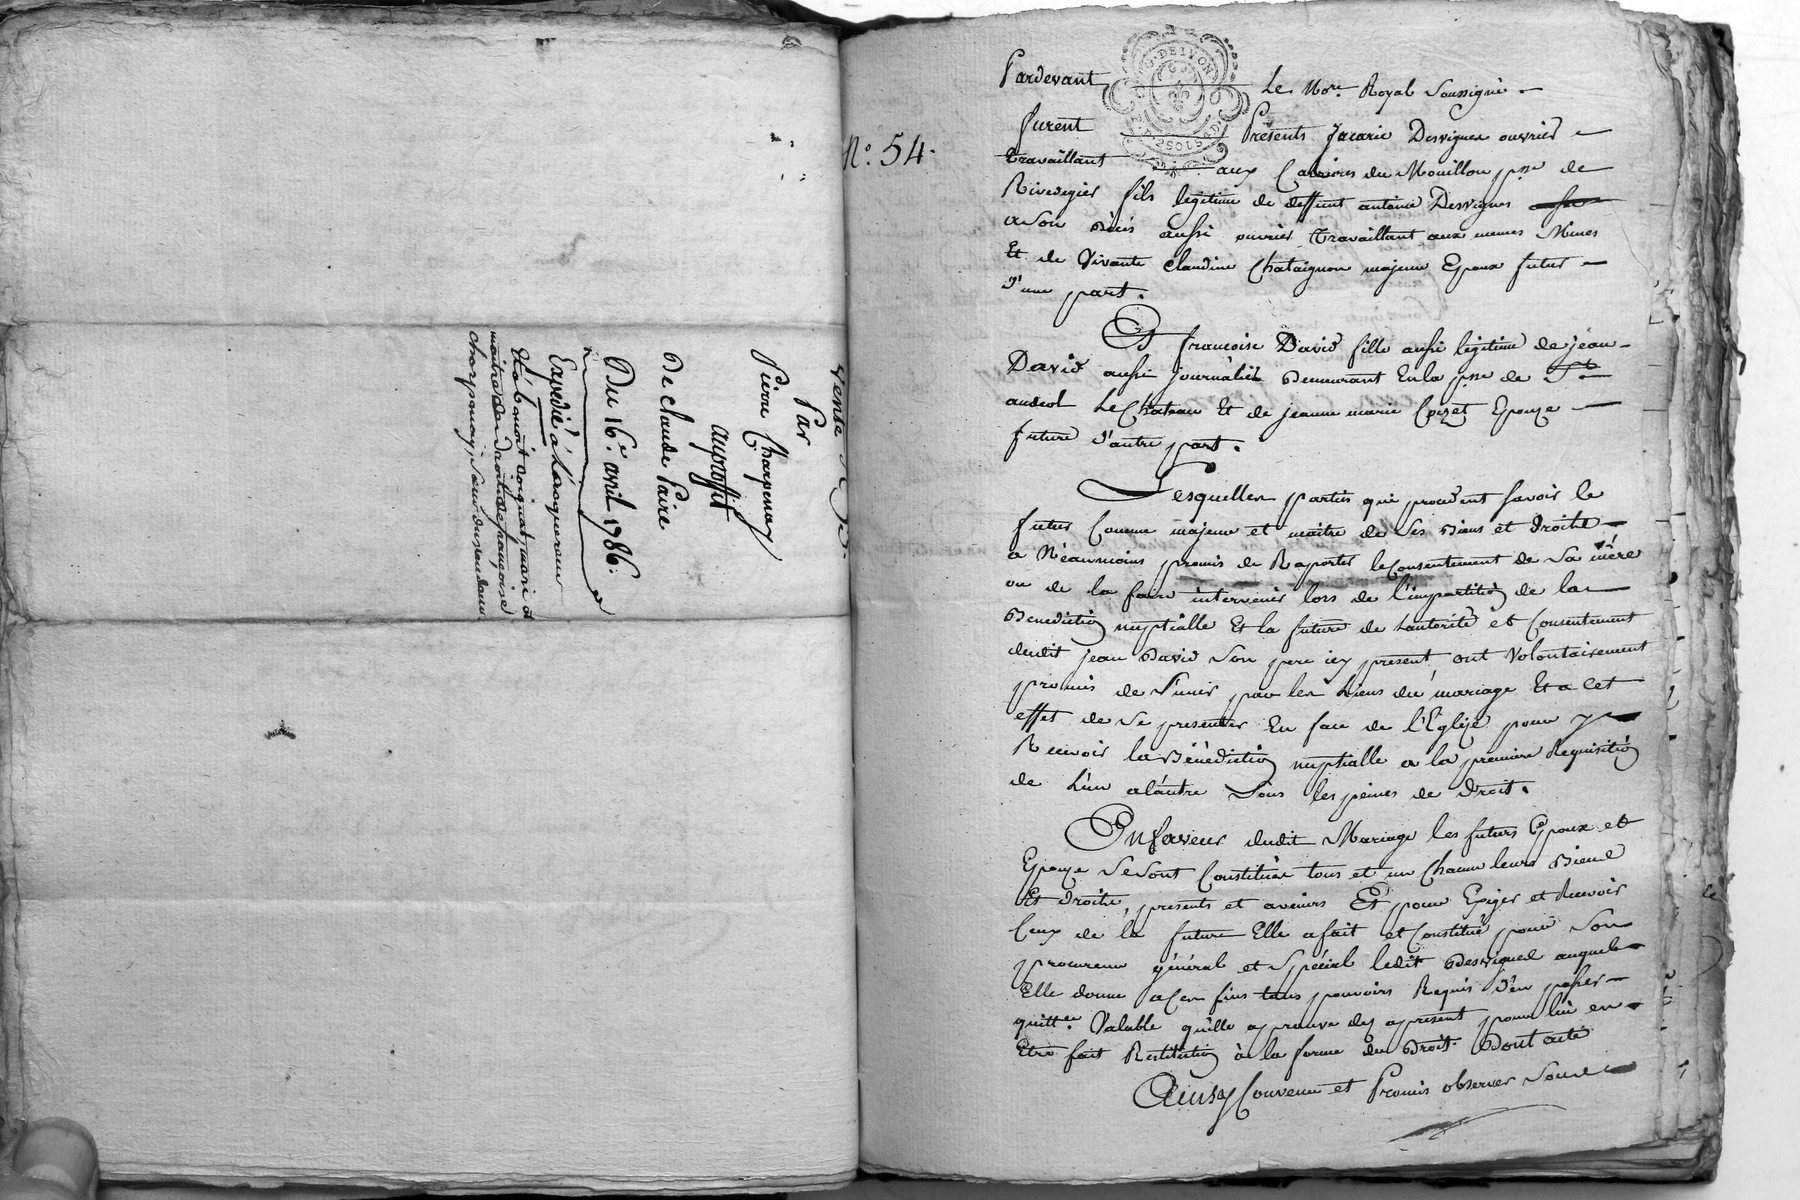 Vente
Par
Pierre Charpenay
auproffit
De claude Faire
Du 16e. avril 1786.
Expedié a Lacquereur
maitre des droits de françoise
charpenay,
N.o 54.
G. DE LYON
2 SOLS
Pardevant Le Nore. Royal Soussigné
furent Présents Jacarie Desvignes ouvrier
travaillant aux Carieres du Mouillon psse de
Rivedegier fils legitime de deffunt antoine Desvignes
a son deces aussi ouvrier travaillant aux memes Mines
Et de Vivante Claudine Chataignon majeur Epoux futur
D'une part.
Et francoise David fille aussi legitime de jean
David aussi journalier Demeurant En la psse de St
andeol Le Chateau Et de jeanne marie Epouze
future d'autre part.
Lesquelles parties qui procedent savoir le
futur Comme majeur et maitre de Ses Biens et droits
a Néanmoins promis de Raporter le Consentement de Sa mére
ou de la faire intervenir lors de l'impartition de la
Benediction nuptialle Et la future de Lautorité et Consentement
dudit jean David Son pere icy present, ont Volontairement
promis de S'unir par les Liens du mariage Et a Cet
effet de Se presenter En face de l'Eglise pour y
Recevoir la Bénédiction nuptialle a la premiere Requisition
de L'un a lautre Sous les peines de Droit.
En faveur dudit Mariage les futurs Epoux et
Epouze Se Sont Constitués tous et un Chacun leurs Biens
Et droits, presents et avenirs Et pour Exiger et Recevoir
Ceux de la future Elle a fait et Constitué pour Son
procureur général et Spécial ledit Desvignes auquel
Elle donne a ces fins tous pouvoirs Requis d'en passer
quittce. Valable qu'elle aprouve des apresent pour lui en
Etre fait Restitution a la forme du Droit. Dont acte
Ainsy Convenu et Promis observer Sous